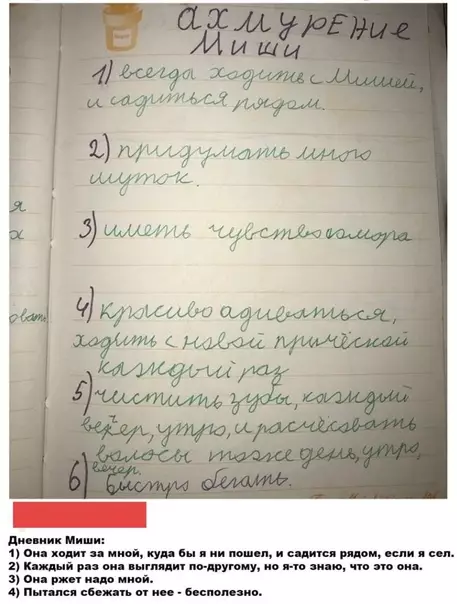 ахмурение
Миши
1) всегда ходить с Мишей,
и садиться рядом.
2) придумать много
шуток.
3) иметь чувство юмора
4) красиво адиваться,
ходить с новой причёской
каждый раз
5) чистить зубы, каждый
вечер, утро, и расчёсовать
волосы тоже день, утро,
вечер.
6) быстро бегать.
я
овать
Дневник Миши:
1) Она ходит за мной, куда бы я ни пошел, и садится рядом, если я сел.
2) Каждый раз она выглядит по-другому, но я-то знаю, что это она.
3) Она ржет надо мной.
4) Пытался сбежать от нее - бесполезно.